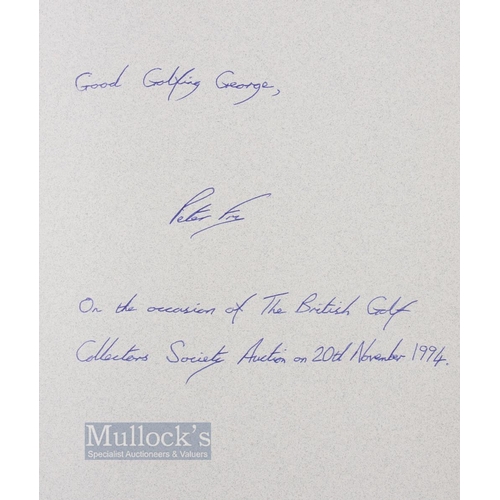 Good Golfing George,
Peter Fry
On the occasion of The British Golf
Collectors Society Auction on 20th November 1994.
Mullock's
Specialist Auctioneers & Valuers